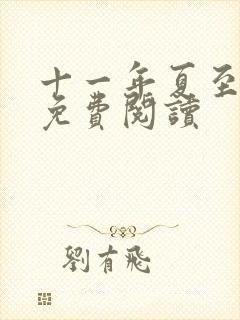 十一年夏至
免費閱讀
劉有飛